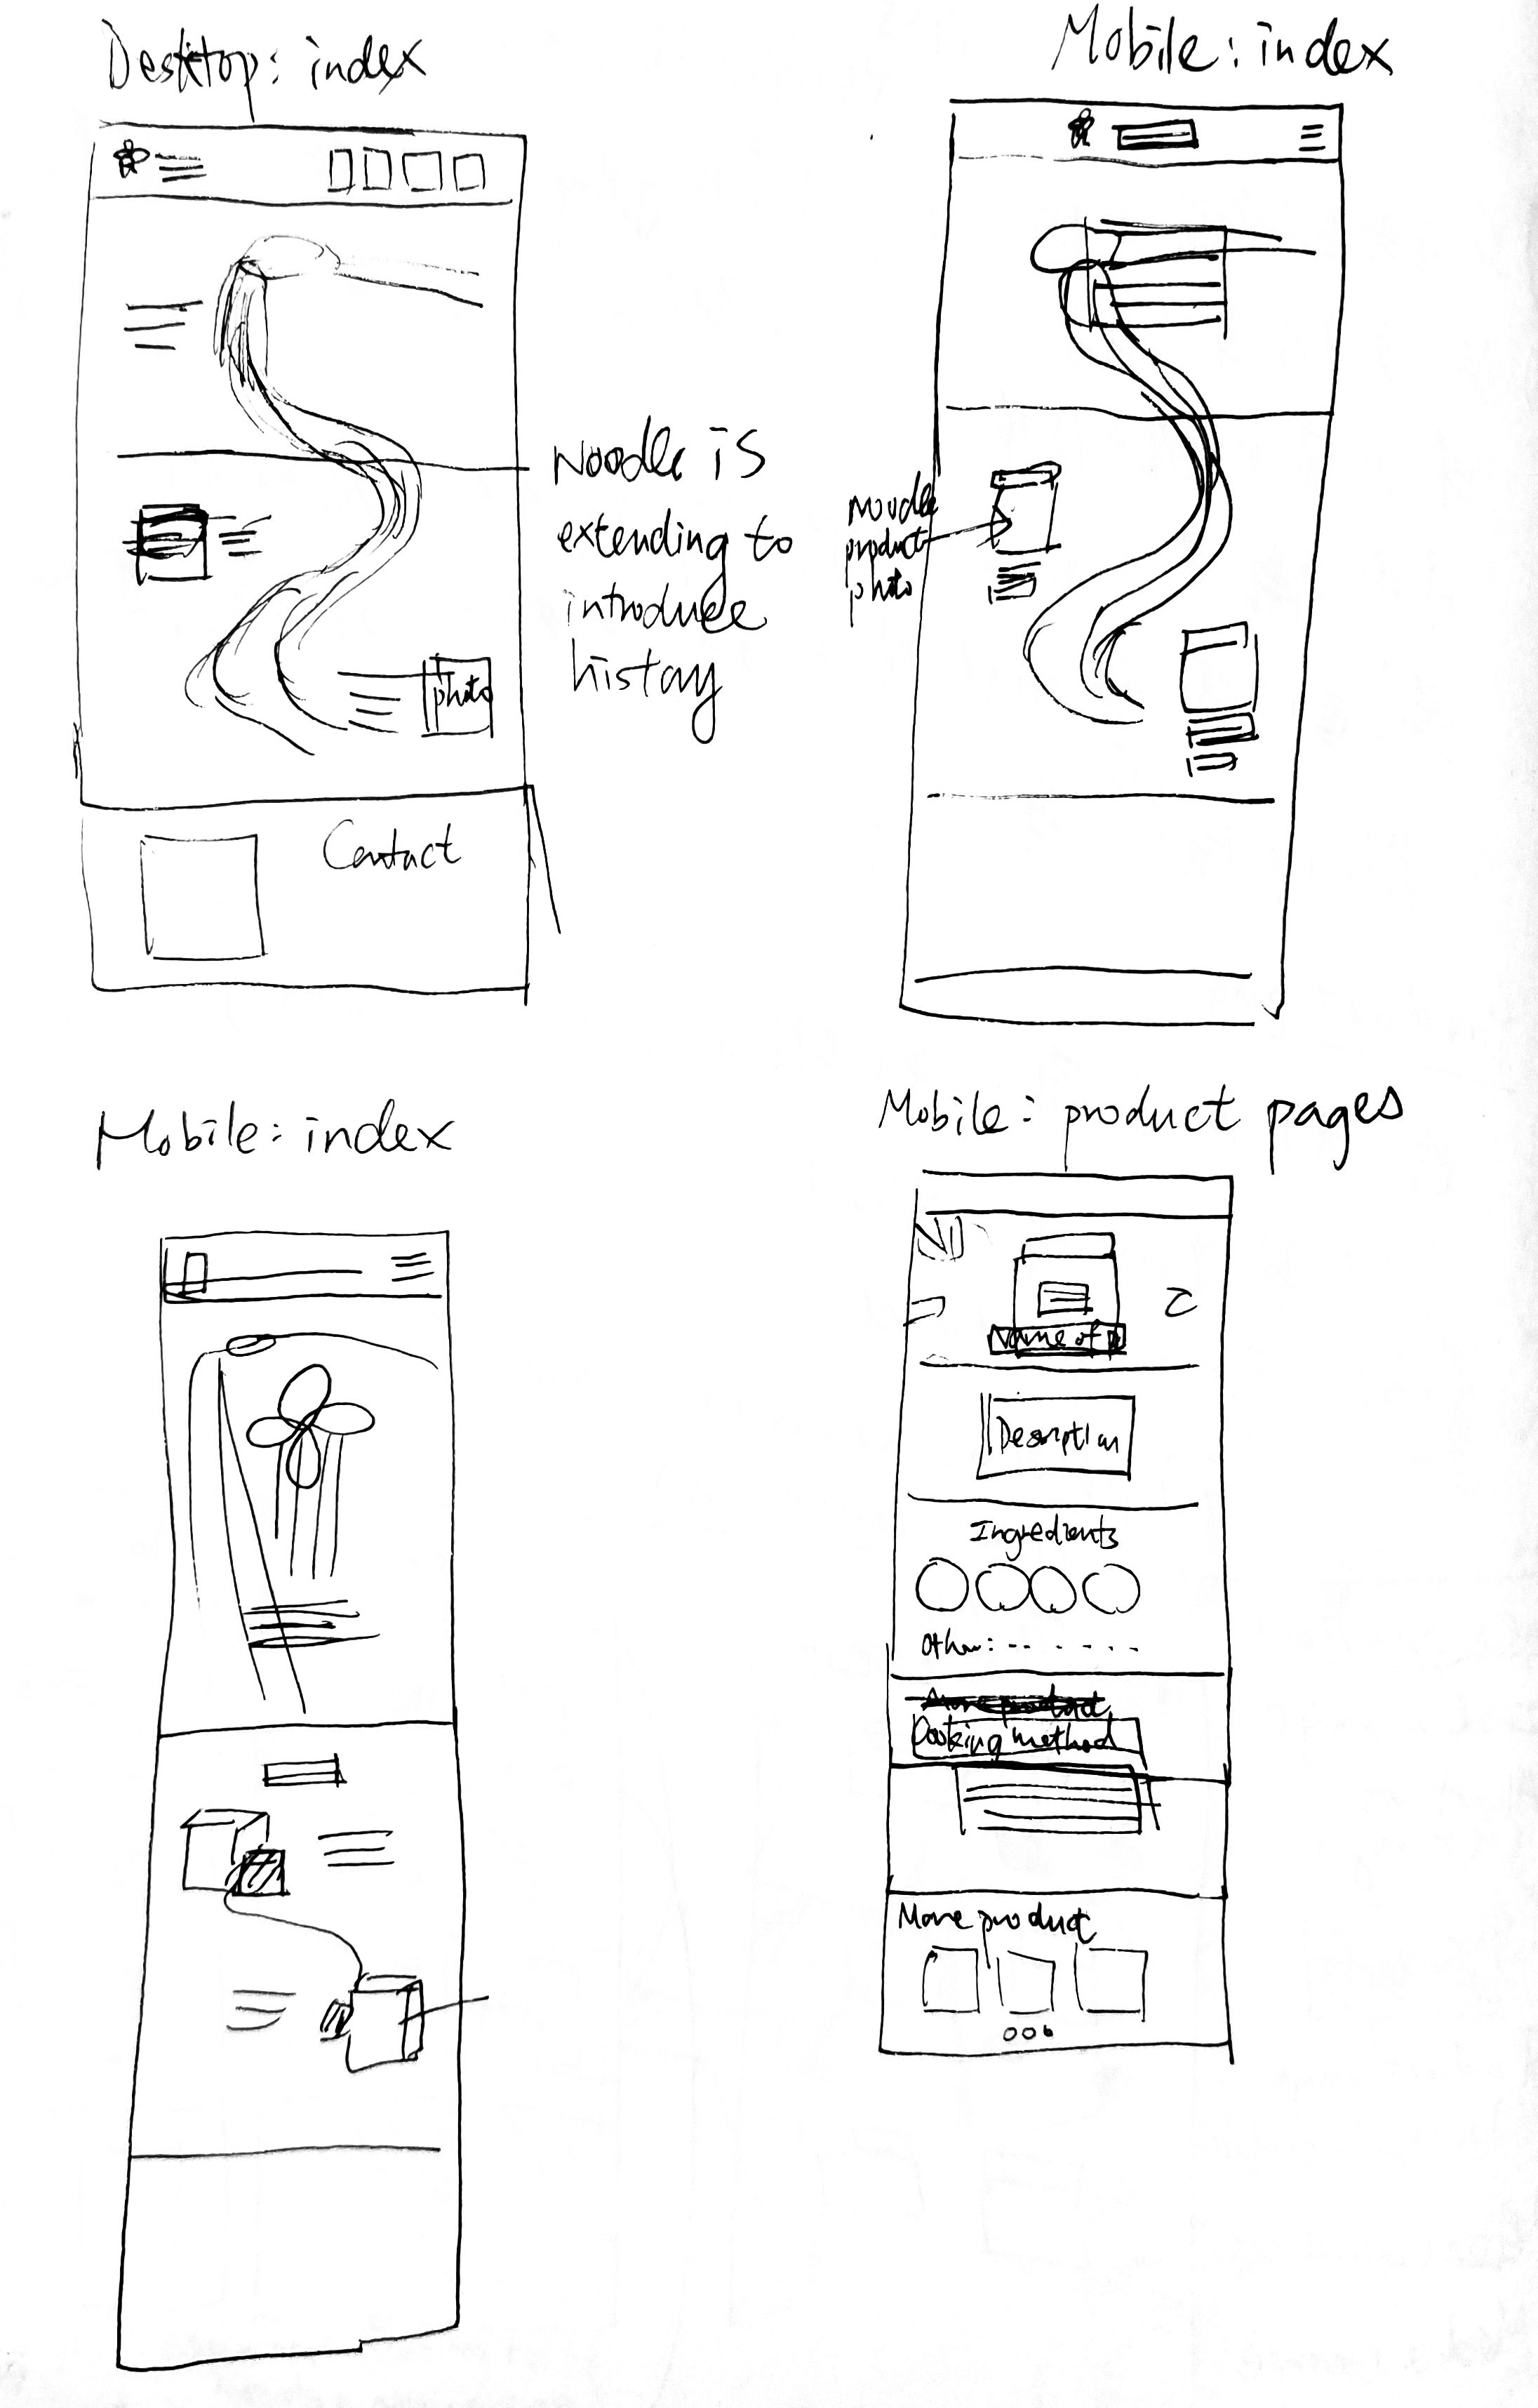 Desktop: index
Mobile: index
Noodle is
extending to
introduce
history
photo
Contact
Noodle
product
photo
Mobile: index
Mobile: product pages
Name of p
Description
Ingredients
Other:
More product
Cooking method
More product